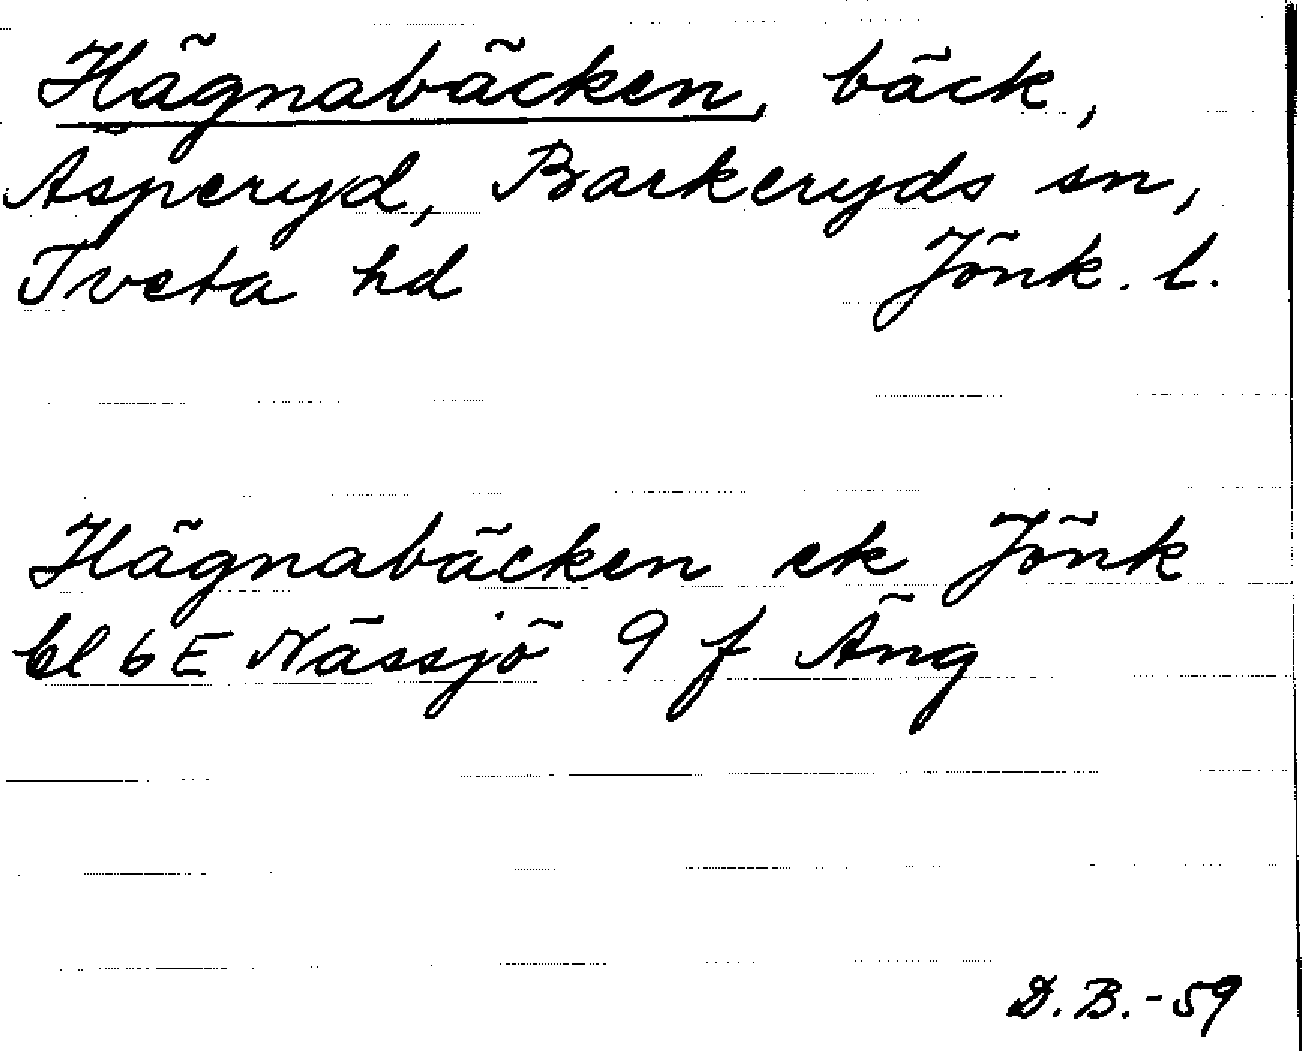 Hägnabäcken, bäck,
Asperyd, Barkeryds sn,
Tveta hd Jönk. l.
Hägnabäcken ek Jönk
bl 6 E Nässjö 9 f Äng
D.B.-59